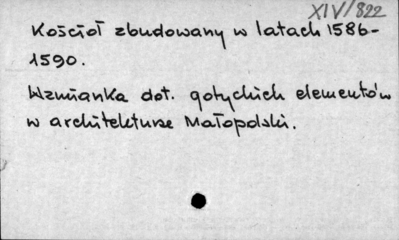 XIV/822
Kościoł zbudowany w latach 1586-
1590.
Wzmianka dot. gotyckich elementów
w architekturze Małopolski.